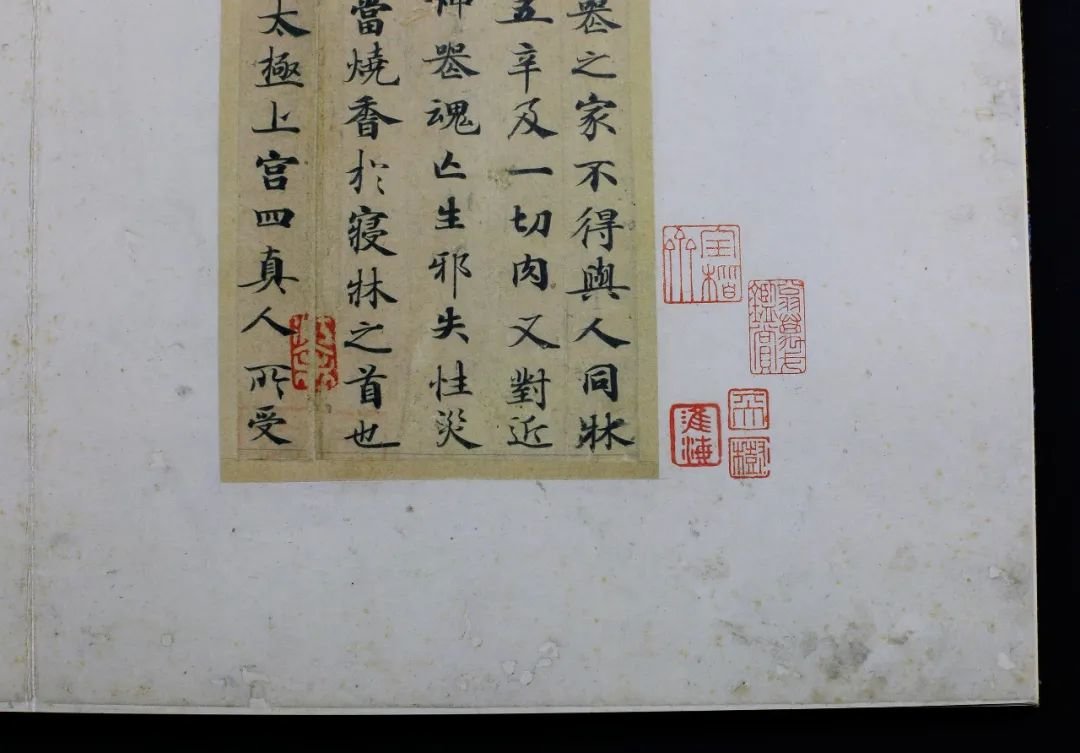 喪之家不得與人同牀
五辛及一切肉又對近
神喪魂亡生邪失性災
當燒香於寢牀之首也
太極上宮四真人所受
翁萬戈
鑑賞